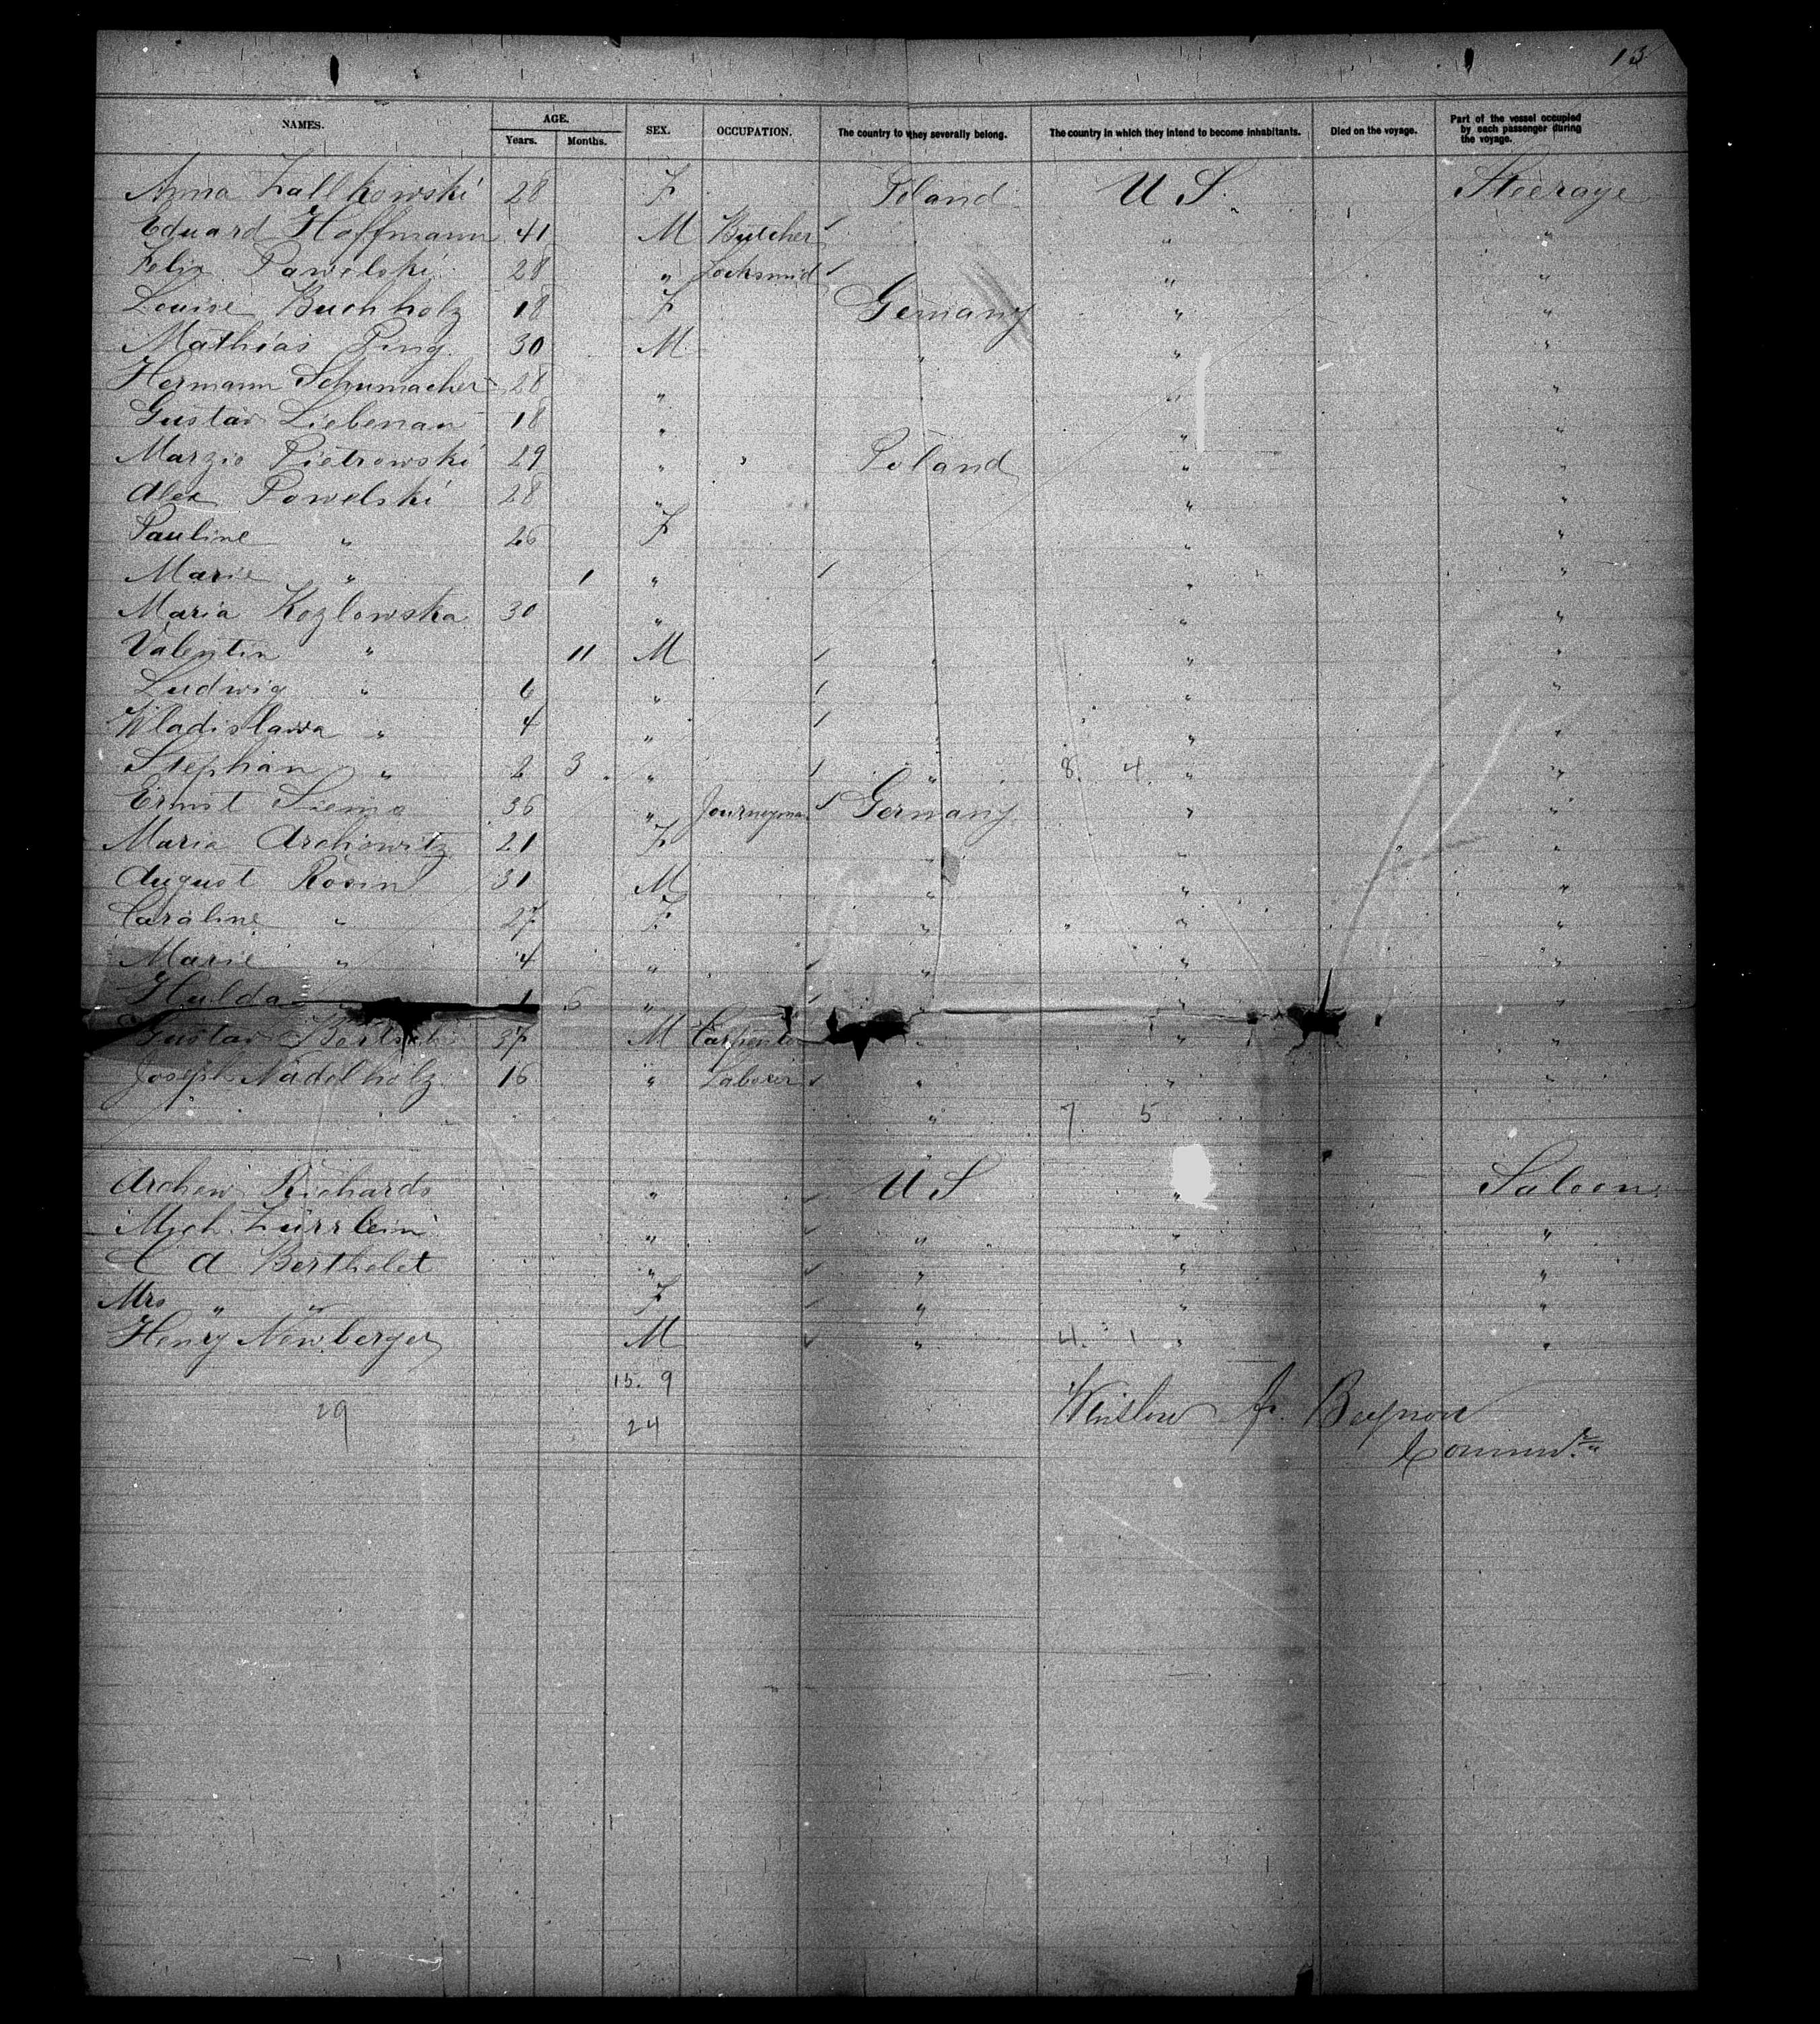 13
NAMES. AGE. Years. Months. SEX. OCCUPATION. The country to they severally belong. The country in which they intend to become inhabitants. Died on the voyage. Part of the vessel occupied by each passenger during the voyage.
Anna Zallkowski 28 F Poland U S. Steerage
Eduard Hoffmann 41 M Butcher " "
Felix Pawelski 28 " Locksmid " "
Louise Buchholz 18 F Germany " "
Mathias Ping 30 M " " "
Hermann Schumacher 28 " " " "
Gustav Liebenau 18 " " "
Marzio Pietrowski 29 " Poland " "
Alex Powelski 28 " " "
Pauline " 26 F " "
Marie " 1 " " "
Maria Kozlowska 30 " " "
Valentin " 11 M " " "
Ludwig " 6 " " "
Wladislawa " 4 " " " "
Stephan " 2 3 " " 8. 4. " "
Ernst 36 " Journeyman Germany " "
Maria Archowitz 21 F " " "
August Rosin 31 M " " "
Caroline " 27 F " " "
Marie " 4 " " " "
Hulda " 1 6 " " " "
Gustav 37 M Carpenter " " "
Joseph Nadelholz 16 " Labourer " " "
" 7 5
Richards " U S " Saloon
Mich. Zürrlein " " " "
C A Berthelet " " " "
Mrs " " F " " "
Henry Newberger M " 4. 1 " "
15. 9
29 24
Winslow Jr.